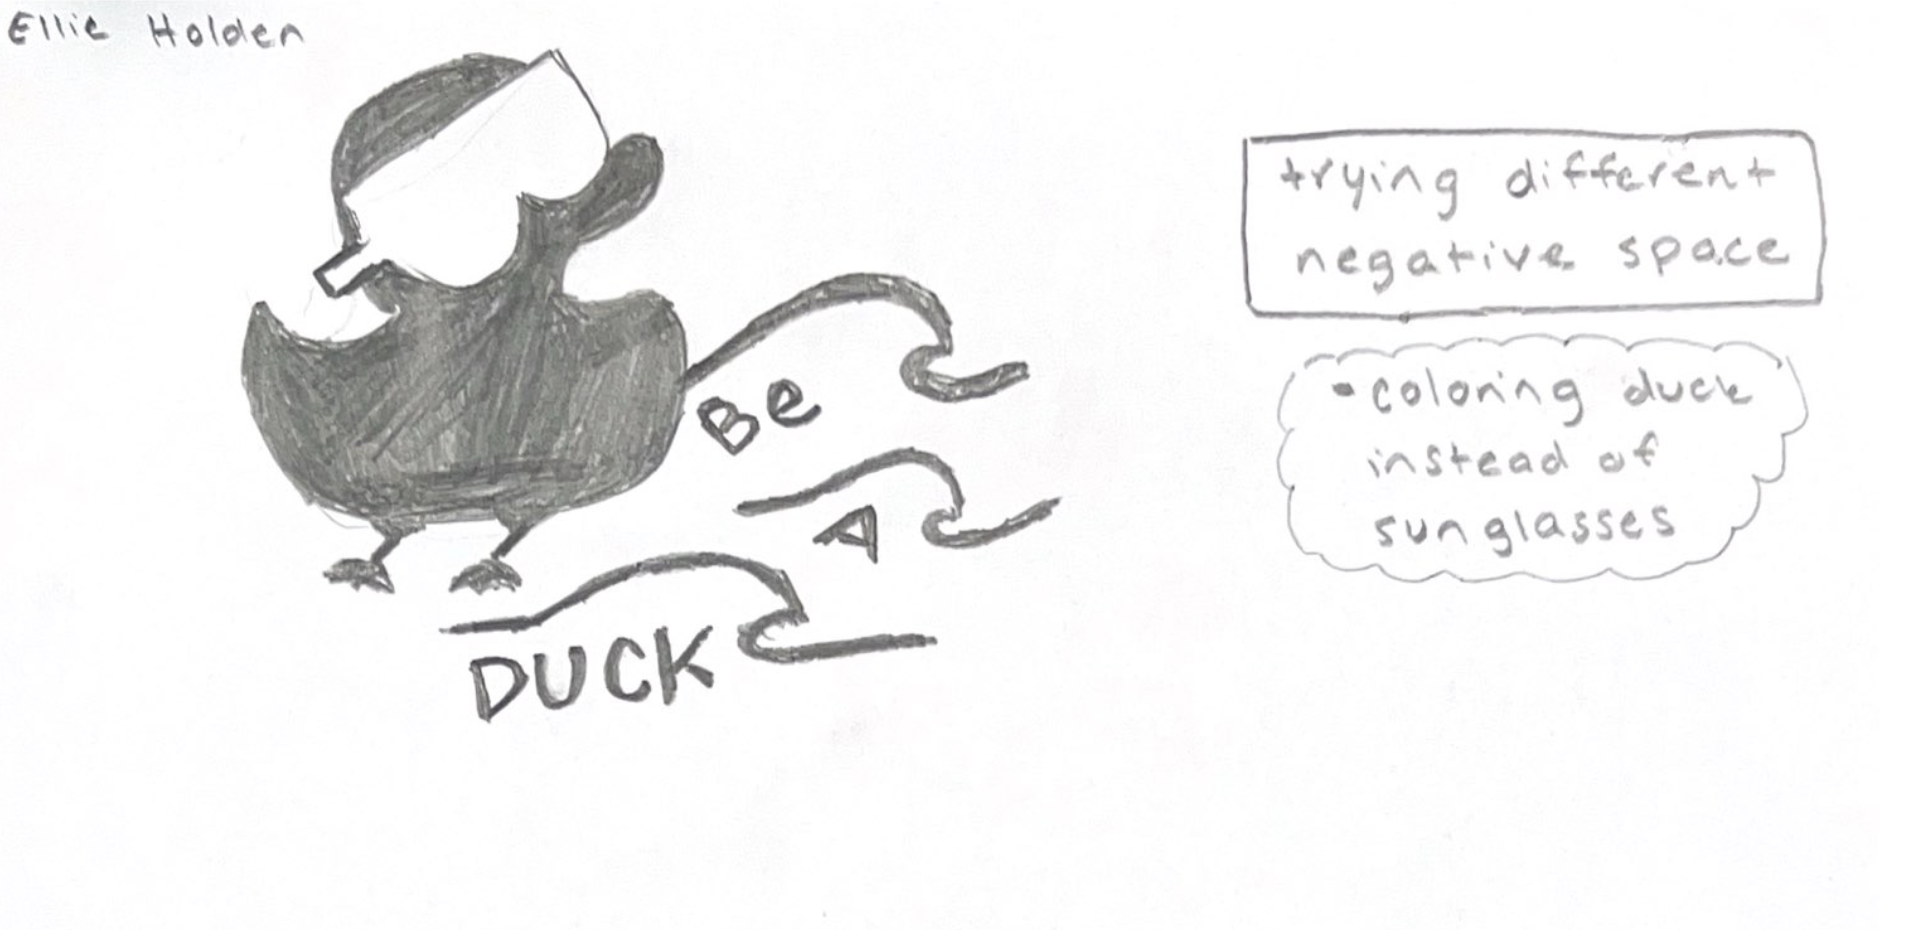 Ellie Holden
trying different
negative space
Be
A
DUCK
-coloring duck
instead of
sunglasses